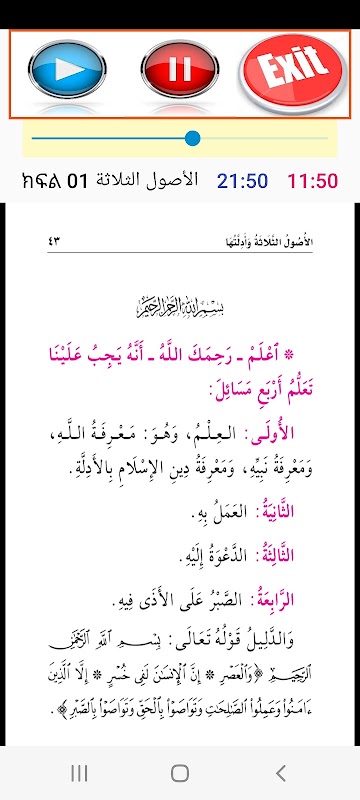 Exit
ክፍል 01 الأصول الثلاثة 21:50 11:50
الأُصُولُ الثَّلَاثَةُ وَأَدِلَّتُهَا ٤٣
بِسْمِ اللَّهِ الرَّحْمَنِ الرَّحِيمِ
* اعْلَمْ ـ رَحِمَكَ اللَّهُ ـ أَنَّهُ يَجِبُ عَلَيْنَا
تَعَلُّمُ أَرْبَعِ مَسَائِلَ:
الأُولَى: العِلْمُ، وَهُوَ: مَعْرِفَةُ اللَّهِ،
وَمَعْرِفَةُ نَبِيِّهِ، وَمَعْرِفَةُ دِينِ الإِسْلَامِ بِالأَدِلَّةِ.
الثَّانِيَةُ: العَمَلُ بِهِ.
الثَّالِثَةُ: الدَّعْوَةُ إِلَيْهِ.
الرَّابِعَةُ: الصَّبْرُ عَلَى الأَذَى فِيهِ.
وَالدَّلِيلُ قَوْلُهُ تَعَالَى: بِسْمِ اللَّهِ الرَّحْمَٰنِ
الرَّحِيمِ ﴿وَالْعَصْرِ * إِنَّ الْإِنسَٰنَ لَفِي خُسْرٍ * إِلَّا الَّذِينَ
ءَامَنُوا۟ وَعَمِلُوا۟ الصَّٰلِحَٰتِ وَتَوَاصَوْا۟ بِالْحَقِّ وَتَوَاصَوْا۟ بِالصَّبْرِ﴾.